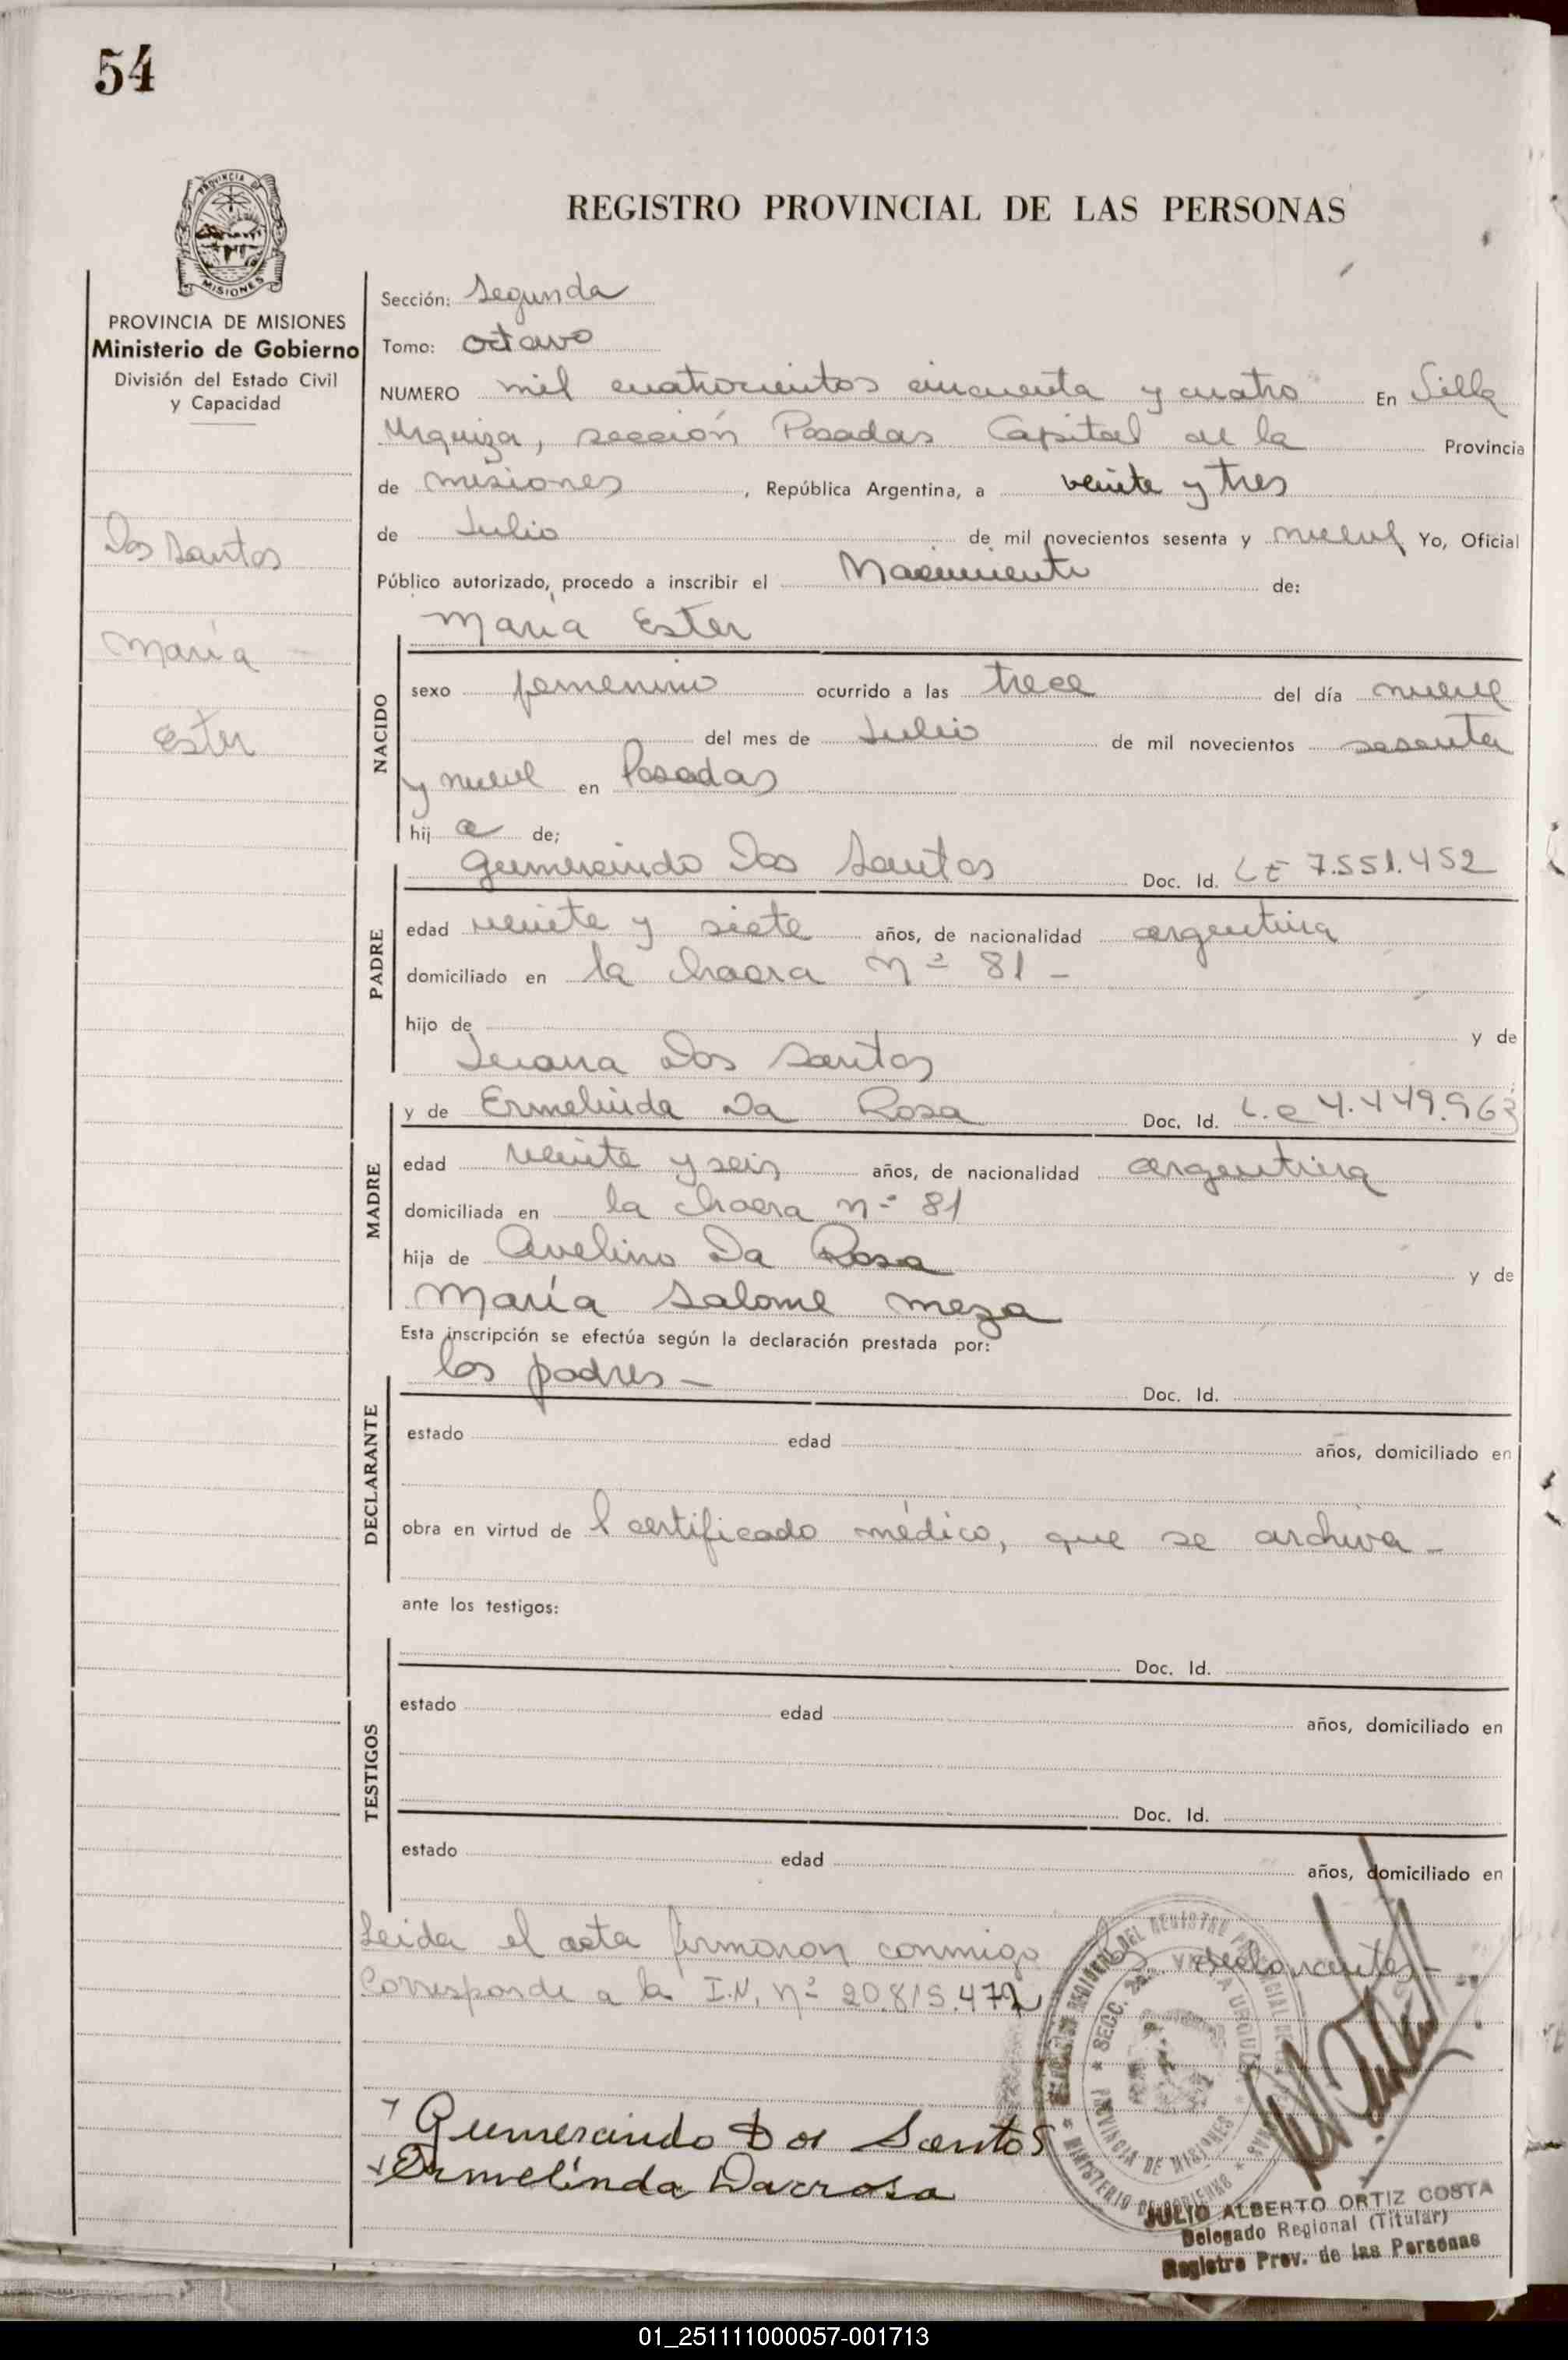 54
PROVINCIA DE
MISIONES
REGISTRO PROVINCIAL DE LAS PERSONAS
PROVINCIA DE MISIONES
Ministerio de Gobierno
División del Estado Civil
y Capacidad
Dos Santos
María
Ester
Sección: Segunda
Tomo: octavo
NUMERO mil cuatrocientos cincuenta y cuatro En Villa
Urquiza, sección Posadas Capital de la Provincia
de misiones, República Argentina, a veinte y tres
de Julio de mil novecientos sesenta y nueve Yo, Oficial
Público autorizado, procedo a inscribir el Nacimiento de:
María Ester
NACIDO
sexo femenino ocurrido a las trece del día nueve
del mes de Julio de mil novecientos sesenta
y nueve en Posadas
hij a de;
Gumercindo Dos Santos Doc. Id. L E 7.551.452
PADRE
edad veinte y siete años, de nacionalidad argentina
domiciliado en la chacra nº 81 -
hijo de y de
Juana Dos Santos
y de Ermelinda Da Rosa Doc. Id. L.C 4.449.963
MADRE
edad veinte y seis años, de nacionalidad argentina
domiciliada en la chacra nº 81
hija de Avelino Da Rosa y de
María Salome meza
Esta inscripción se efectúa según la declaración prestada por:
los padres - Doc. Id.
DECLARANTE
estado edad años, domiciliado en
obra en virtud de l certificado médico, que se archiva -
ante los testigos:
Doc. Id.
TESTIGOS
estado edad años, domiciliado en
Doc. Id.
estado edad años, domiciliado en
Leida el acta firmaron conmigo los declarantes -
Corresponde a la I.N. nº 20.815.472
Gumercindo Dos Santos
Ermelinda Darrosa
DEL REGISTRO PROVINCIAL DE LAS PERSONAS * MINISTERIO DE GOBIERNO *
* SECC. 2da. VILLA URQUIZA * PROVINCIA DE MISIONES
JULIO ALBERTO ORTIZ COSTA
Delegado Regional (Titular)
Registro Prov. de las Personas
01_251111000057-001713